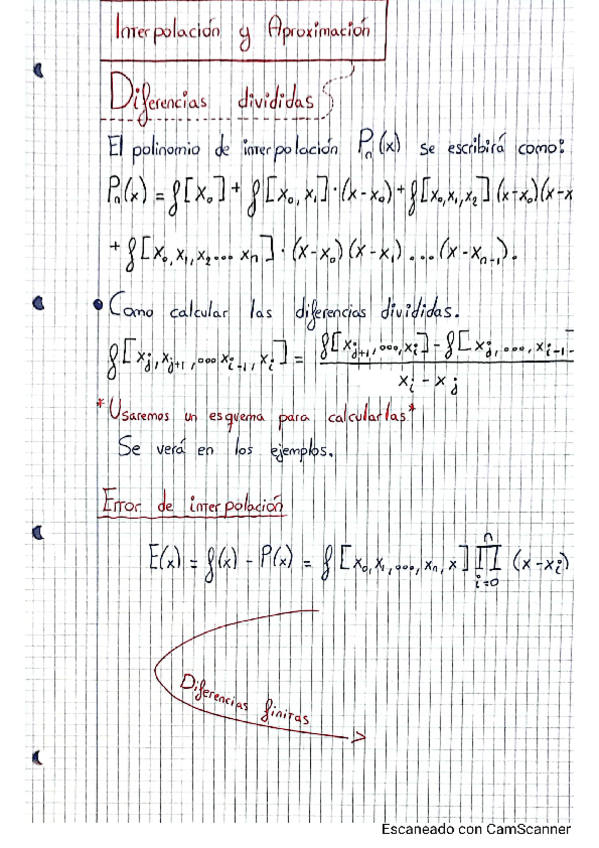 Interpolación y Aproximación
Diferencias divididas
El polinomio de interpolación Pₙ(x) se escribirá como:
Pₙ(x) = f[x₀] + f[x₀, x₁]·(x-x₀) + f[x₀,x₁,x₂](x-x₀)(x-x
+ f[x₀, x₁, x₂... xₙ]·(x-x₀)(x-x₁)...(x-xₙ₋₁).
• Como calcular las diferencias divididas.
f[xⱼ, xⱼ₊₁, ... xᵢ₋₁, xᵢ] = (f[xⱼ₊₁, ..., xᵢ] - f[xⱼ, ..., xᵢ₋₁]) / (xᵢ - xⱼ)
*Usaremos un esquema para calcularlas*
Se verá en los ejemplos.
Error de interpolación
E(x) = f(x) - P(x) = f[x₀, x₁, ..., xₙ, x] ∏ᵢ₌₀ⁿ (x-xᵢ)
Diferencias finitas
Escaneado con CamScanner